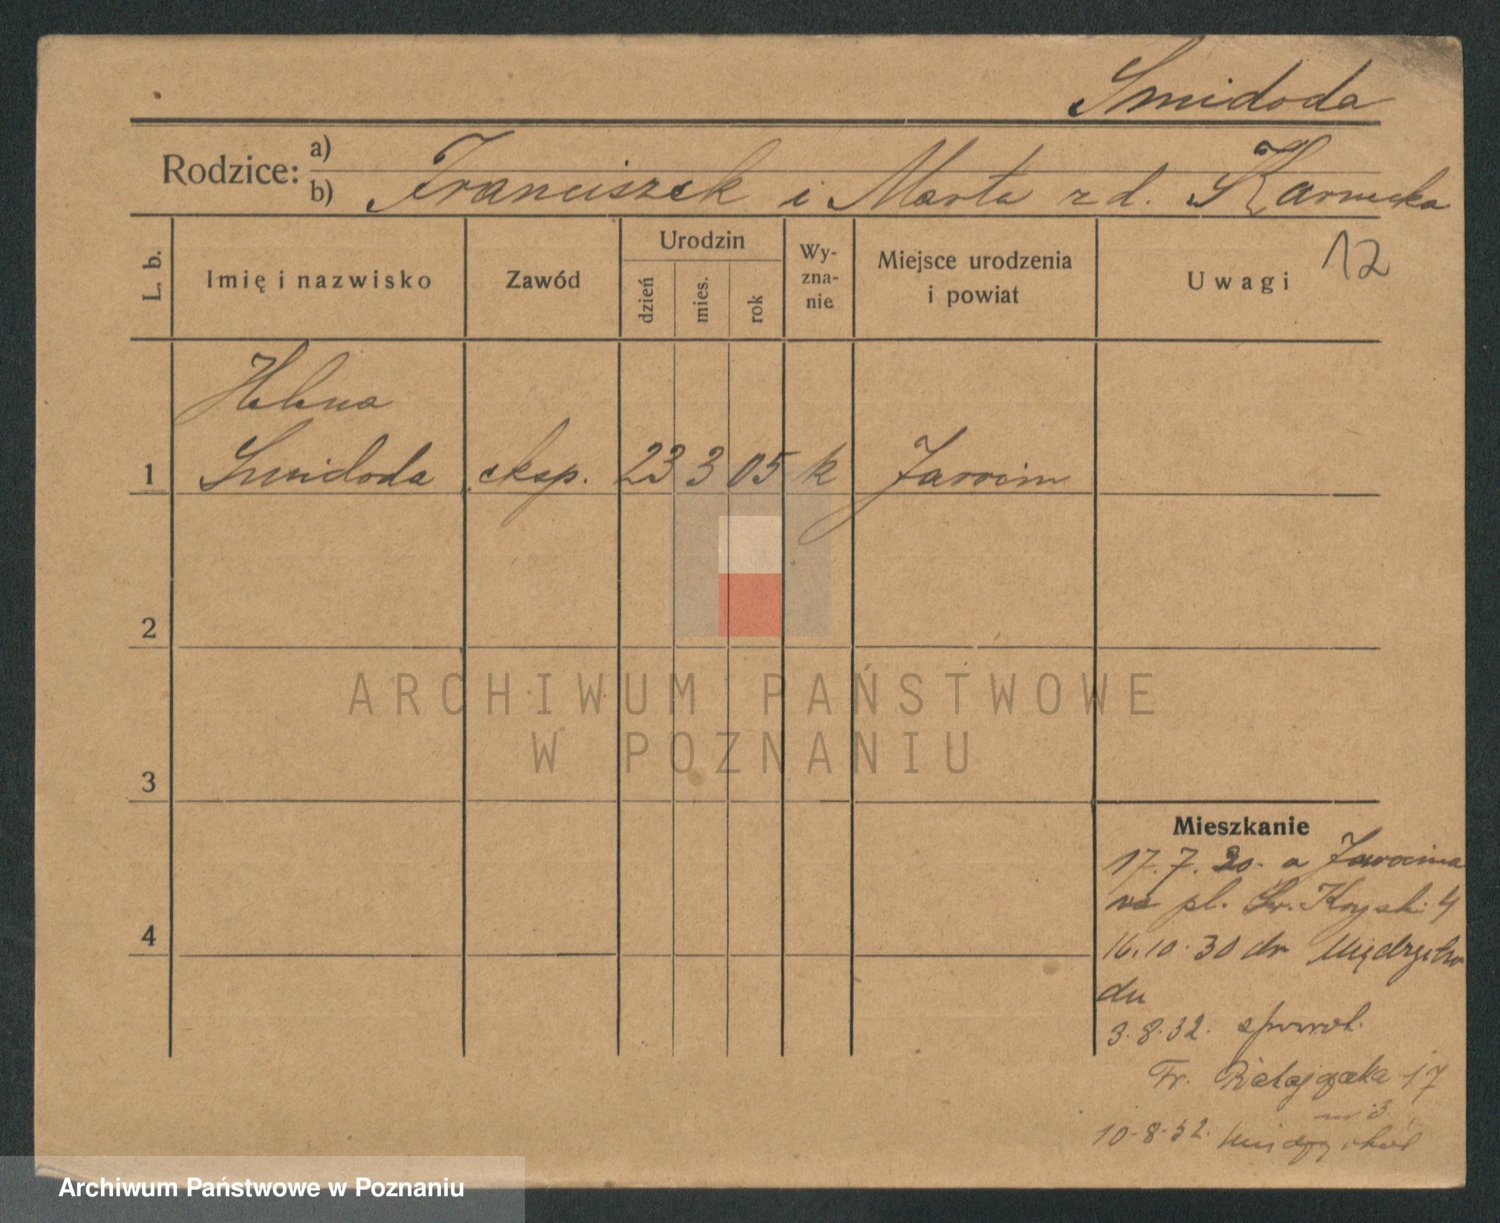 Smidoda
Rodzice: a)
b) Franciszek i Marta z d. Karnicka
L. b.
Imię i nazwisko
Zawód
Urodzin
dzień
mies.
rok
Wy-
zna-
nie
Miejsce urodzenia
i powiat
Uwagi
12
Helena
1 Smidoda eksp. 23 3 05 k Jarocin
2
3
4
Mieszkanie
17.7.20. a Jarocina
pl. Św. Krzyski 4
16.10.30 do Międzycho
du
3.8.32. spowrot.
Fr. Ratajczaka 17
m 3
10.8.32. Międzychód
ARCHIWUM PAŃSTWOWE
W POZNANIU
Archiwum Państwowe w Poznaniu